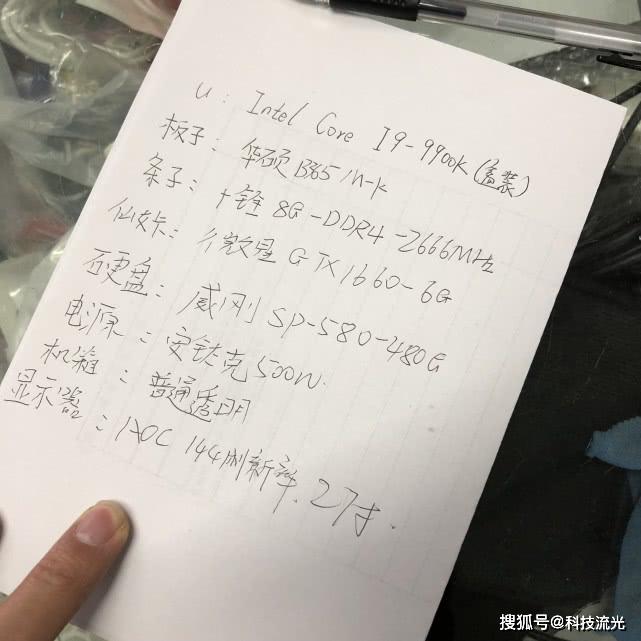 u: Intel Core I9-9900K(盒装)
板子: 华硕B365M-K
条子: 十铨 8G-DDR4-2666MHz
仙女卡: 微星 GTX1660-6G
硬盘: 威刚 SP-580-480G
电源: 安钛克500W
机箱: 普通透明
显示器: AOC 144刷新率. 27寸.
搜狐号@科技流光